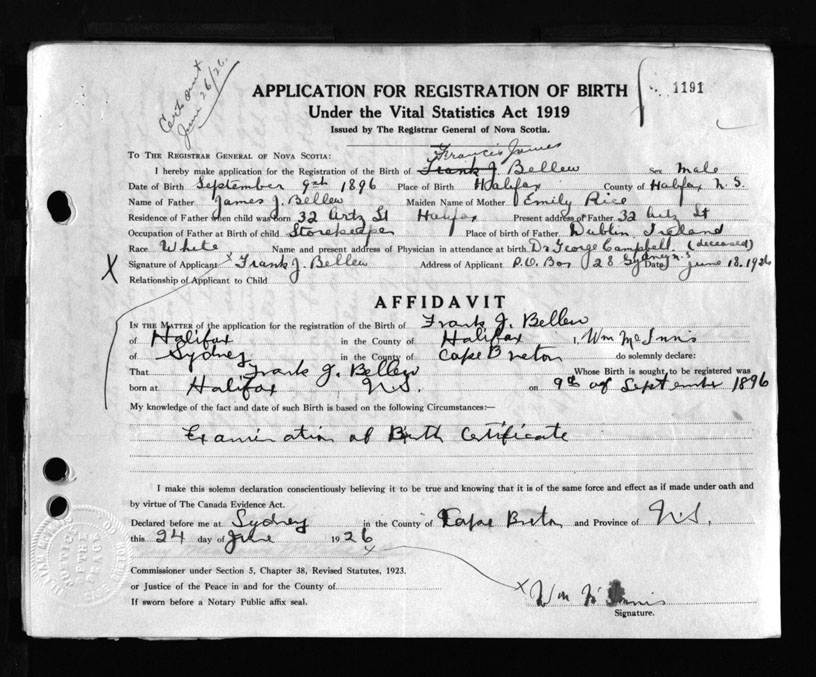 Cert sent
June 26/26.
APPLICATION FOR REGISTRATION OF BIRTH
1191
Under the Vital Statistics Act 1919
Issued by The Registrar General of Nova Scotia.
TO THE REGISTRAR GENERAL OF NOVA SCOTIA:
Francis James
I hereby make application for the Registration of the Birth of Frank J. Bellew Sex Male
Date of Birth September 9th 1896 Place of Birth Halifax County of Halifax N.S.
Name of Father James J. Bellew Maiden Name of Mother Emily Rice
Residence of Father when child was born 32 Artz St Halifax Present address of Father 32 Artz St
Occupation of Father at Birth of child Storekeeper Place of birth of Father Dublin, Ireland
Race White Name and present address of Physician in attendance at birth Dr George Campbell (deceased)
X Signature of Applicant x Frank J. Bellew Address of Applicant P.O. Box 28 Sydney N.S Date June 18. 1926
Relationship of Applicant to Child
AFFIDAVIT
IN THE MATTER of the application for the registration of the Birth of Frank J. Bellew
of Halifax in the County of Halifax I, Wm McInnis
of Sydney in the County of Cape Breton do solemnly declare:
That Frank J. Bellew Whose Birth is sought to be registered was
born at Halifax N.S. on 9th of September 1896
My knowledge of the fact and date of such Birth is based on the following Circumstances:—
Examination of Birth Certificate
I make this solemn declaration conscientiously believing it to be true and knowing that it is of the same force and effect as if made under oath and
by virtue of The Canada Evidence Act.
Declared before me at Sydney in the County of Cape Breton and Province of N.S.
this 24 day of June 1926
x
Commissioner under Section 5, Chapter 38, Revised Statutes, 1923.
or Justice of the Peace in and for the County of
If sworn before a Notary Public affix seal.
x Wm McInnis
Signature.